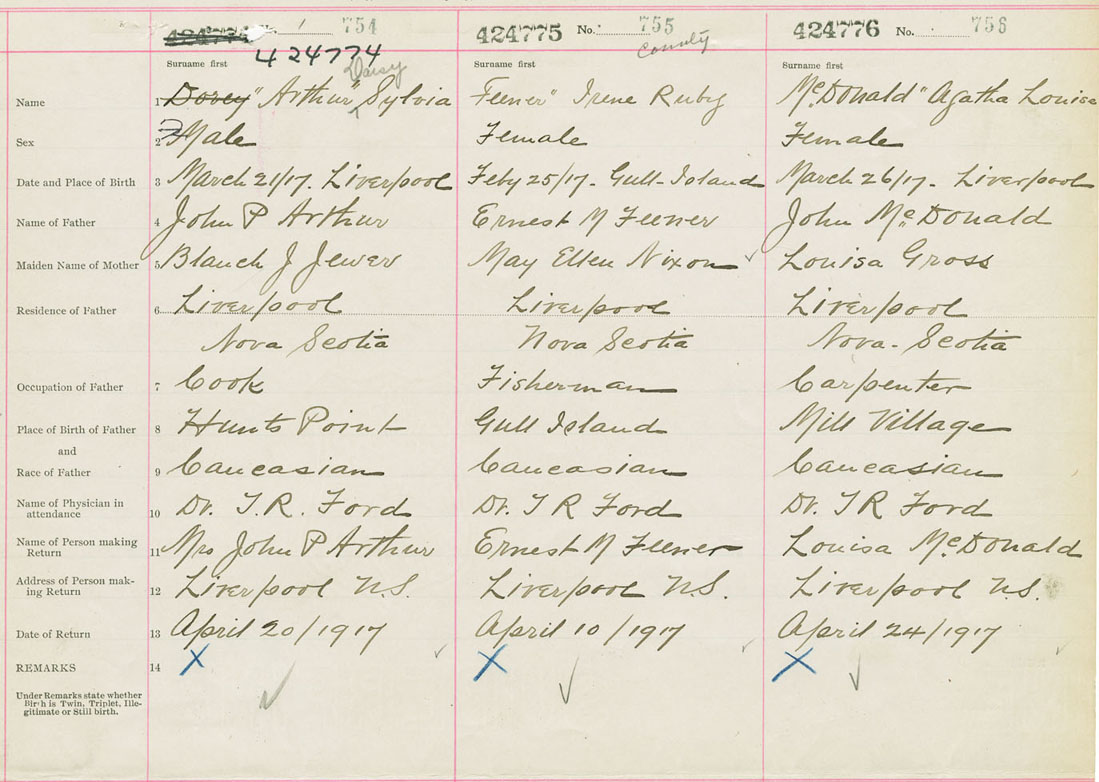 424774 No. 754 424775 No. 755 424776 No. 756
424774 County
Surname first Surname first Surname first
Daisy
Name 1 Dorey" Arthur" Sylvia Feener" Irene Ruby McDonald" Agatha Louise
Sex 2 FMale Female Female
Date and Place of Birth 3 March 21/17. Liverpool Feby 25/17- Gull-Island March 26/17- Liverpool
Name of Father 4 John P Arthur Ernest M Feener John McDonald
Maiden Name of Mother 5 Blanch J Jewer May Ellen Nixon ✓ Louisa Gross
Residence of Father 6 Liverpool Liverpool Liverpool
Nova Scotia Nova Scotia Nova-Scotia
Occupation of Father 7 Cook Fisherman Carpenter
Place of Birth of Father 8 Hunts Point Gull Island Mill Village
and
Race of Father 9 Caucasian Caucasian Caucasian
Name of Physician in
attendance 10 Dr. T.R. Ford Dr. T R Ford Dr. T R Ford
Name of Person making
Return 11 Mrs John P Arthur Ernest M Feener Louisa McDonald
Address of Person mak-
ing Return 12 Liverpool N.S. Liverpool N.S. Liverpool N.S.
Date of Return 13 April 20/1917 April 10/1917 April 24/1917
REMARKS 14 X X X
Under Remarks state whether
Birth is Twin, Triplet, Ille-
gitimate or Still birth.